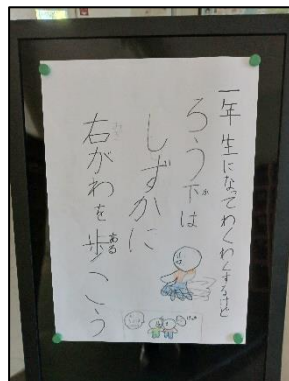 一年生になってわくわくするけど
ろう下は
しずかに
右がわを歩こう